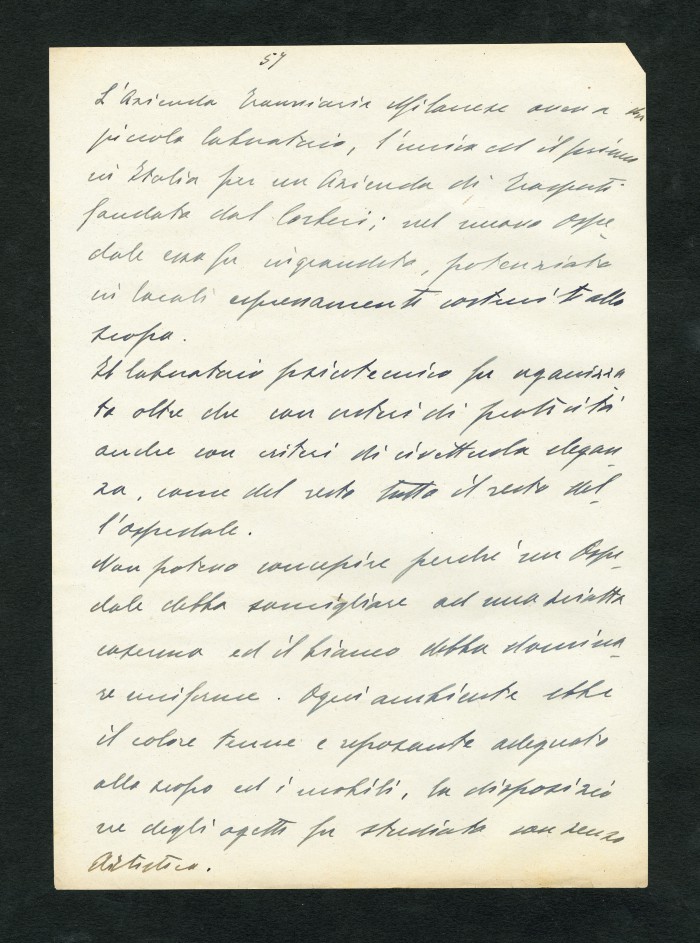 57
L'Azienda Tranviaria Milanese aveva un
piccolo laboratorio, l'unico ed il primo
in Italia per un Azienda di Trasporti
fondato dal Corberi; nel nuovo Ospe-
dale esso fu ingrandito, potenziato
in locali espressamenti costruiti allo
scopo.
Il laboratorio psicotecnico fu organizza
to oltre che con criteri di praticità
anche con criteri di civettuola elegan
za, come del resto tutto il resto del-
l'ospedale.
Non potevo concepire perché un Ospe-
dale debba somigliare ad una sciatta
caserma ed il bianco debba domina-
re uniforme. Ogni ambiente ebbe
il colore tenue e reposante adeguato
allo scopo ed i mobili, la disposizio
ne degli ogetti fu studiata con senso
Artistico.